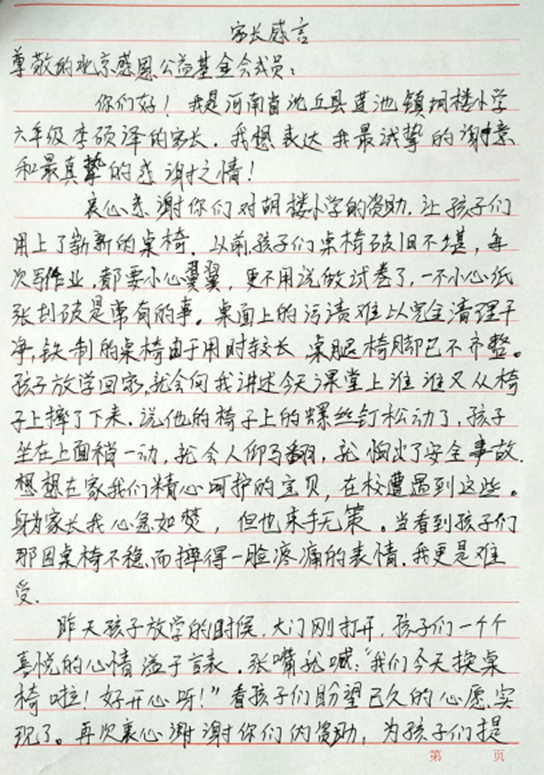 家长感言
尊敬的北京感恩公益基金会成员:
你们好！我是河南省沈丘县莲池镇胡楼小学
六年级李硕泽的家长。我想表达我最诚挚的谢意
和最真挚的感谢之情！
衷心感谢你们对胡楼小学的资助，让孩子们
用上了新新的桌椅。以前，孩子们桌椅破旧不堪，每
次写作业，都要小心翼翼，更不用说做试卷了，一不小心纸
张划破是常有的事。桌面上的污渍难以完全清理干
净，铁制的桌椅由于用时较长，桌腿椅脚已不齐整。
孩子放学回家，就会向我讲述今天课堂上谁谁又从椅
子上摔了下来。说他的椅子上的螺丝钉松动了，孩子
坐在上面稍一动，就会人仰马翻，就怕出了安全事故。
想想在家我们精心呵护的宝贝，在校遭遇到这些。
身为家长我心急如焚，但也束手无策。当看到孩子们
那因桌椅不稳而摔得一脸疼痛的表情，我更是难
受。
昨天孩子放学的时候，大门刚打开，孩子们一个个
喜悦的心情溢于言表，张嘴就喊:“我们今天换桌
椅啦！好开心呀！”看孩子们盼望已久的心愿实
现了。再次衷心谢谢你们的资助，为孩子们提
第 页